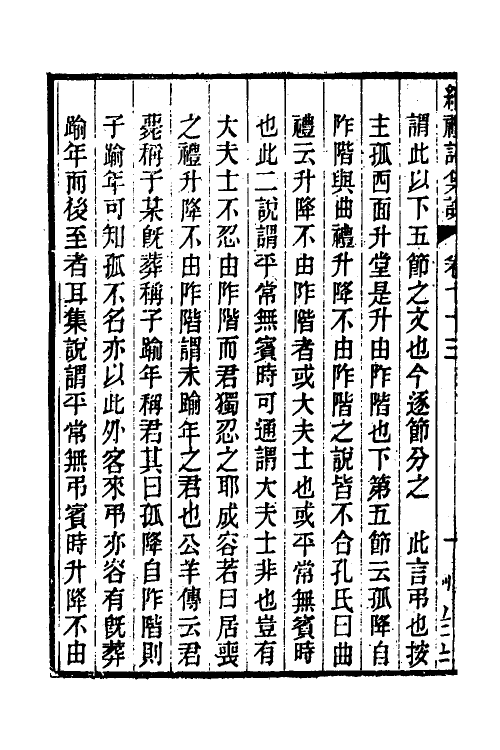 續禮記集說 卷七十三
謂此以下五節之文也今逐節分之　此言弔也按
主孤西面升堂是升由阼階也下第五節云孤降自
阼階與曲禮升降不由阼階之說皆不合孔氏曰曲
禮云升降不由阼階者或大夫士也或平常無賓時
也此二說謂平常無賓時可通謂大夫士非也豈有
大夫士不忍由阼階而君獨忍之耶成容若曰居喪
之禮升降不由阼階謂未踰年之君也公羊傳云君
薨稱子某旣葬稱子踰年稱君其曰孤降自阼階則
子踰年可知孤不名亦以此外客來弔亦容有旣葬
踰年而後至者耳集說謂平常無弔賓時升降不由